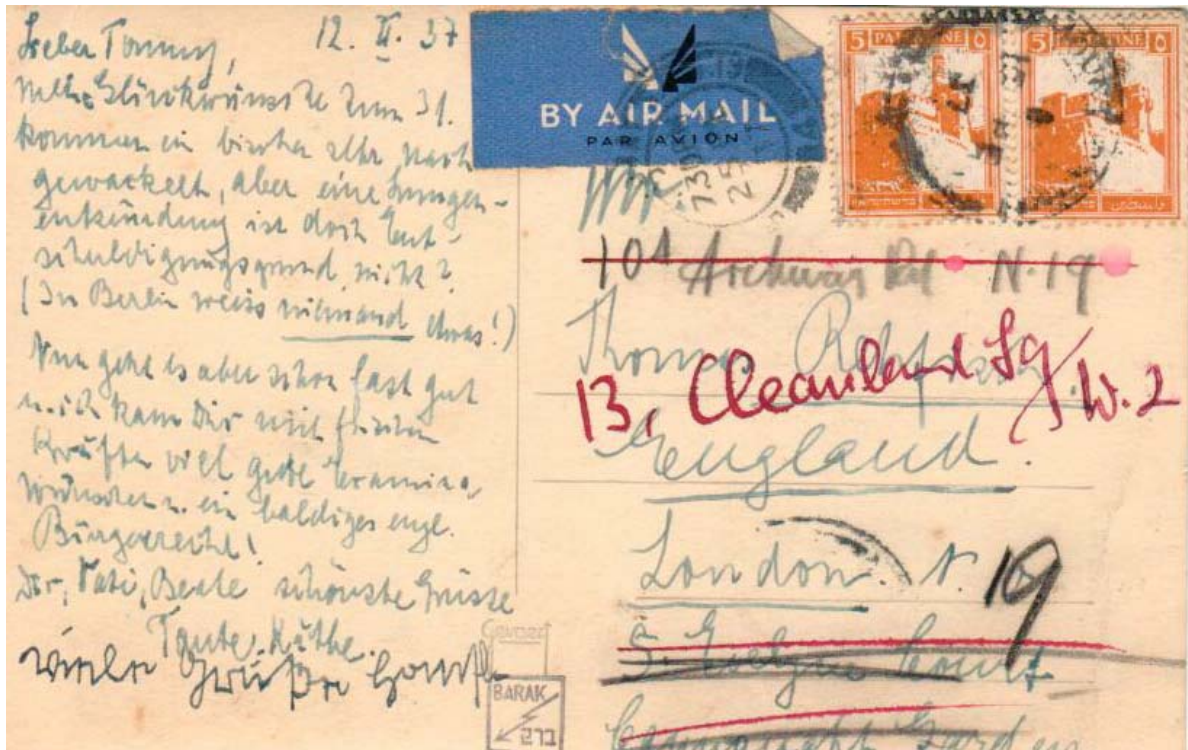 12. II. 37
Lieber Tommy,
Glückwünsche zum 31.
kommen ein bischen sehr nach
gewackelt, aber eine Lungen-
entzündung ist doch Ent-
schuldigungsgrund, nicht?
(In Berlin weiss niemand etwas!)
Nun geht es aber schon fast gut
u. ich kann Dir mit frischen
Kräften viel gute Examina
wünschen u. ein baldiges engl.
Bürgerrecht!
Dir, Vati, Beate schönste Grüsse
Tante Käthe.
viele Grüße
BY AIR MAIL
PAR AVION
5 PALESTINE
5 PALESTINE
Archway Rd N.19
Thomas
13, Cleveland Sq W.2
England.
London. N. 19
5. Evelyn Court
Gevaert
BARAK
ברק